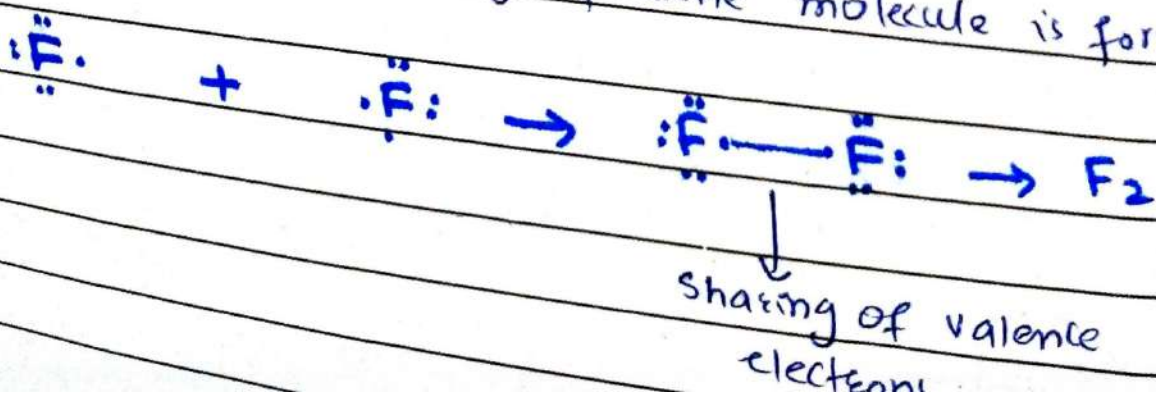 molecule is for
:F̈. + .F̈: → :F̈.—.F̈: → F2
Sharing of valence
electrons